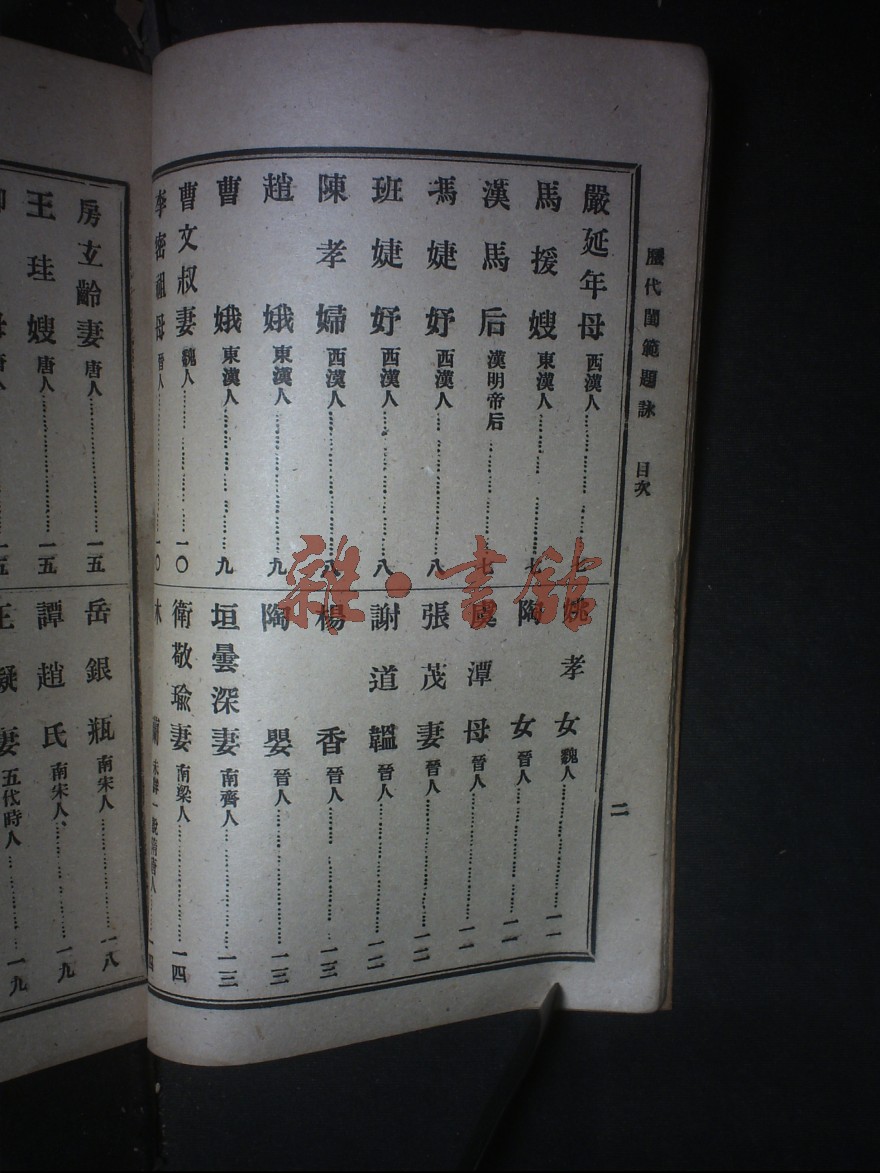 歷代閨範題詠 目次
二
嚴延年母 西漢人 七
馬援嫂 東漢人 七
漢馬后 漢明帝后 七
馮婕妤 西漢人 八
班婕妤 西漢人 八
陳孝婦 西漢人 八
趙娥 東漢人 九
曹娥 東漢人 九
曹文叔妻 魏人 一〇
李密祖母 晉人 一〇
姚孝女 魏人 一一
陶女 晉人 一一
虞潭母 晉人 一一
張茂妻 晉人 一二
謝道韞 晉人 一二
楊香 晉人 一三
陶嬰 晉人 一三
垣曇深妻 南齊人 一三
衛敬瑜妻 南梁人 一四
木蘭 一四
房玄齡妻 唐人 一五
王珪嫂 唐人 一五
母 唐人 一五
岳銀瓶 南宋人 一八
譚趙氏 南宋人 一九
王凝妻 五代時人 一九
雜·書館